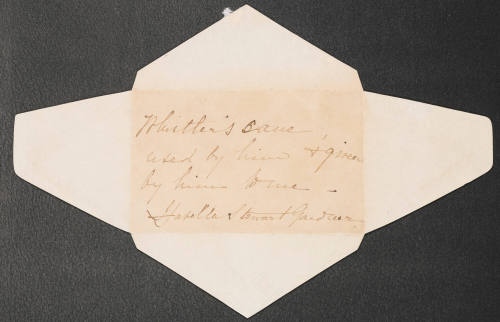 Whistler's cane
used by him & given
by him to me -
Isabella Stewart Gardner